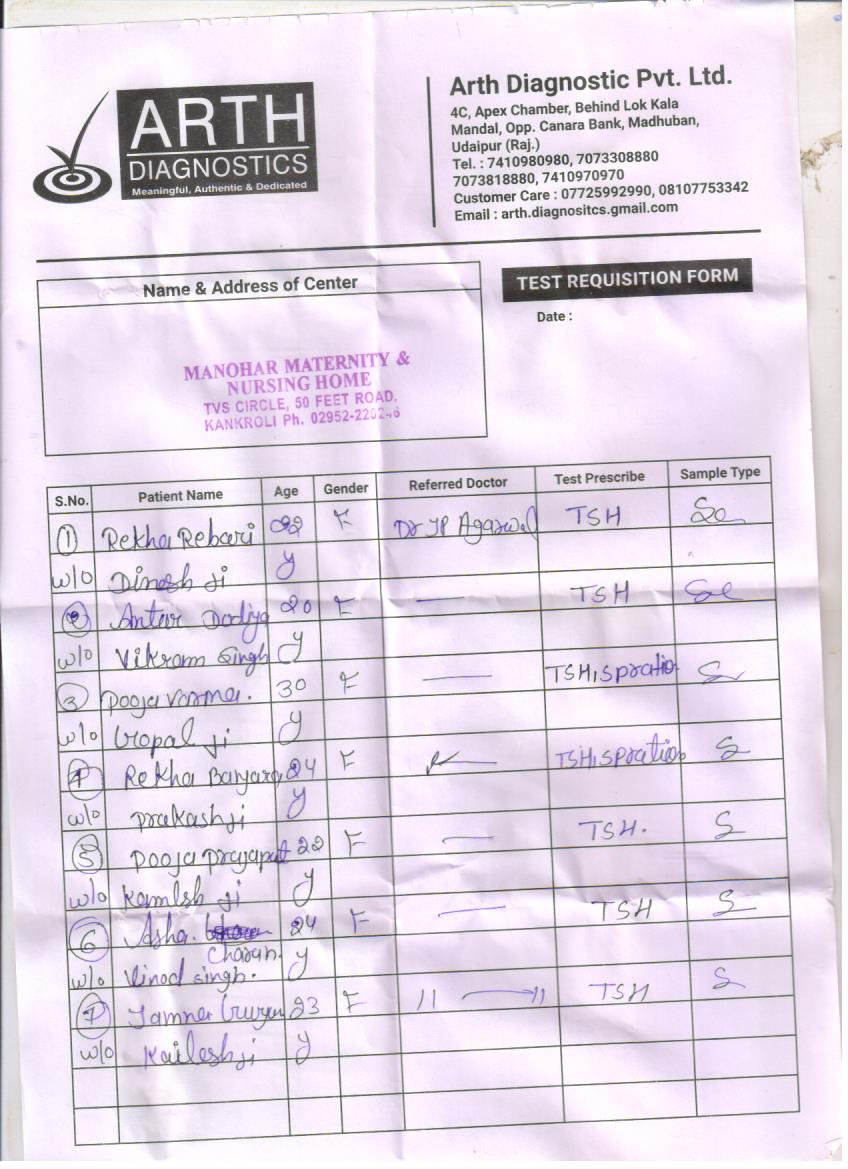 ARTH
DIAGNOSTICS
Meaningful, Authentic & Dedicated
Arth Diagnostic Pvt. Ltd.
4C, Apex Chamber, Behind Lok Kala
Mandal, Opp. Canara Bank, Madhuban,
Udaipur (Raj.)
Tel. : 7410980980, 7073308880
7073818880, 7410970970
Customer Care : 07725992990, 08107753342
Email : arth.diagnositcs.gmail.com
Name & Address of Center
TEST REQUISITION FORM
Date :
MANOHAR MATERNITY &
NURSING HOME
TVS CIRCLE, 50 FEET ROAD,
KANKROLI Ph. 02952-220246
S.No. Patient Name Age Gender Referred Doctor Test Prescribe Sample Type
1 Rekha Rebari 22 F Dr JP Agarwal TSH Se
w/o Dinesh ji y
2 Dodiya 20 F — TSH Se
w/o Vikram Singh y
3 Pooja Varma. 30 F — TSH, S
w/o Gopal ji y
4 Rekha Banjara 24 F — TSH, S
w/o Prakash ji y
5 Pooja Prajapat 22 F — TSH. S
w/o Kamlsh ji y
6 Asha. Charan. 24 F — TSH S
w/o Vinod Singh. y
7 Jamna 23 F 11 — 11 TSH S
w/o Kailesh ji y